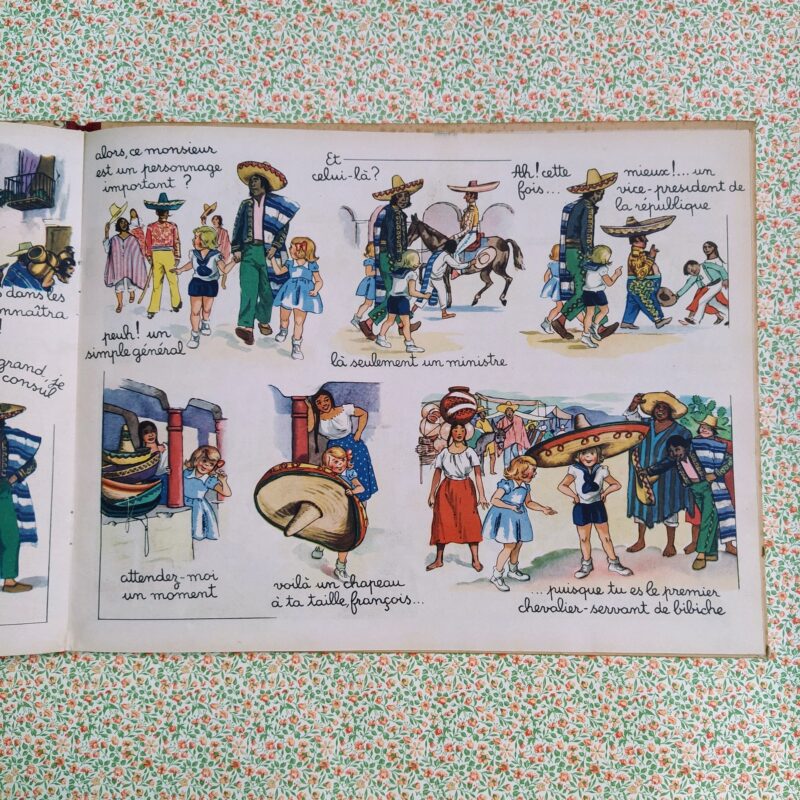 s dans les
nnaîtra
!
grand, je
consul
alors, ce monsieur
est un personnage
important ?
peuh! un
simple général
Et
celui-là ?
là seulement un ministre
Ah! cette
fois...
mieux!... un
vice-president de
la république
attendez-moi
un moment
voilà un chapeau
à ta taille, françois...
... puisque tu es le premier
chevalier-servant de bibiche